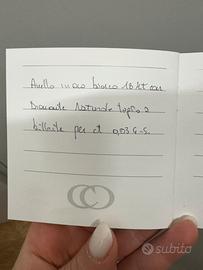 Anello in oro bianco 18 kt con
Diamante Naturale taglio a
brillante per ct 0,03 G-S.
subito